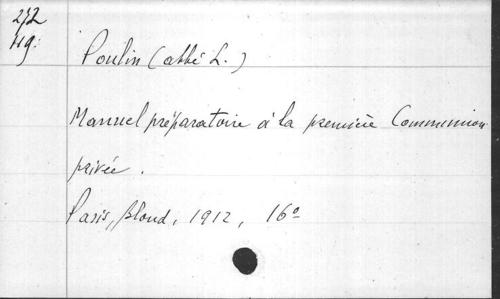 272
49:
Poulin (abbé L.)
Manuel préparatoire à la première Communion
privée.
Paris, Bloud, 1912, 16º